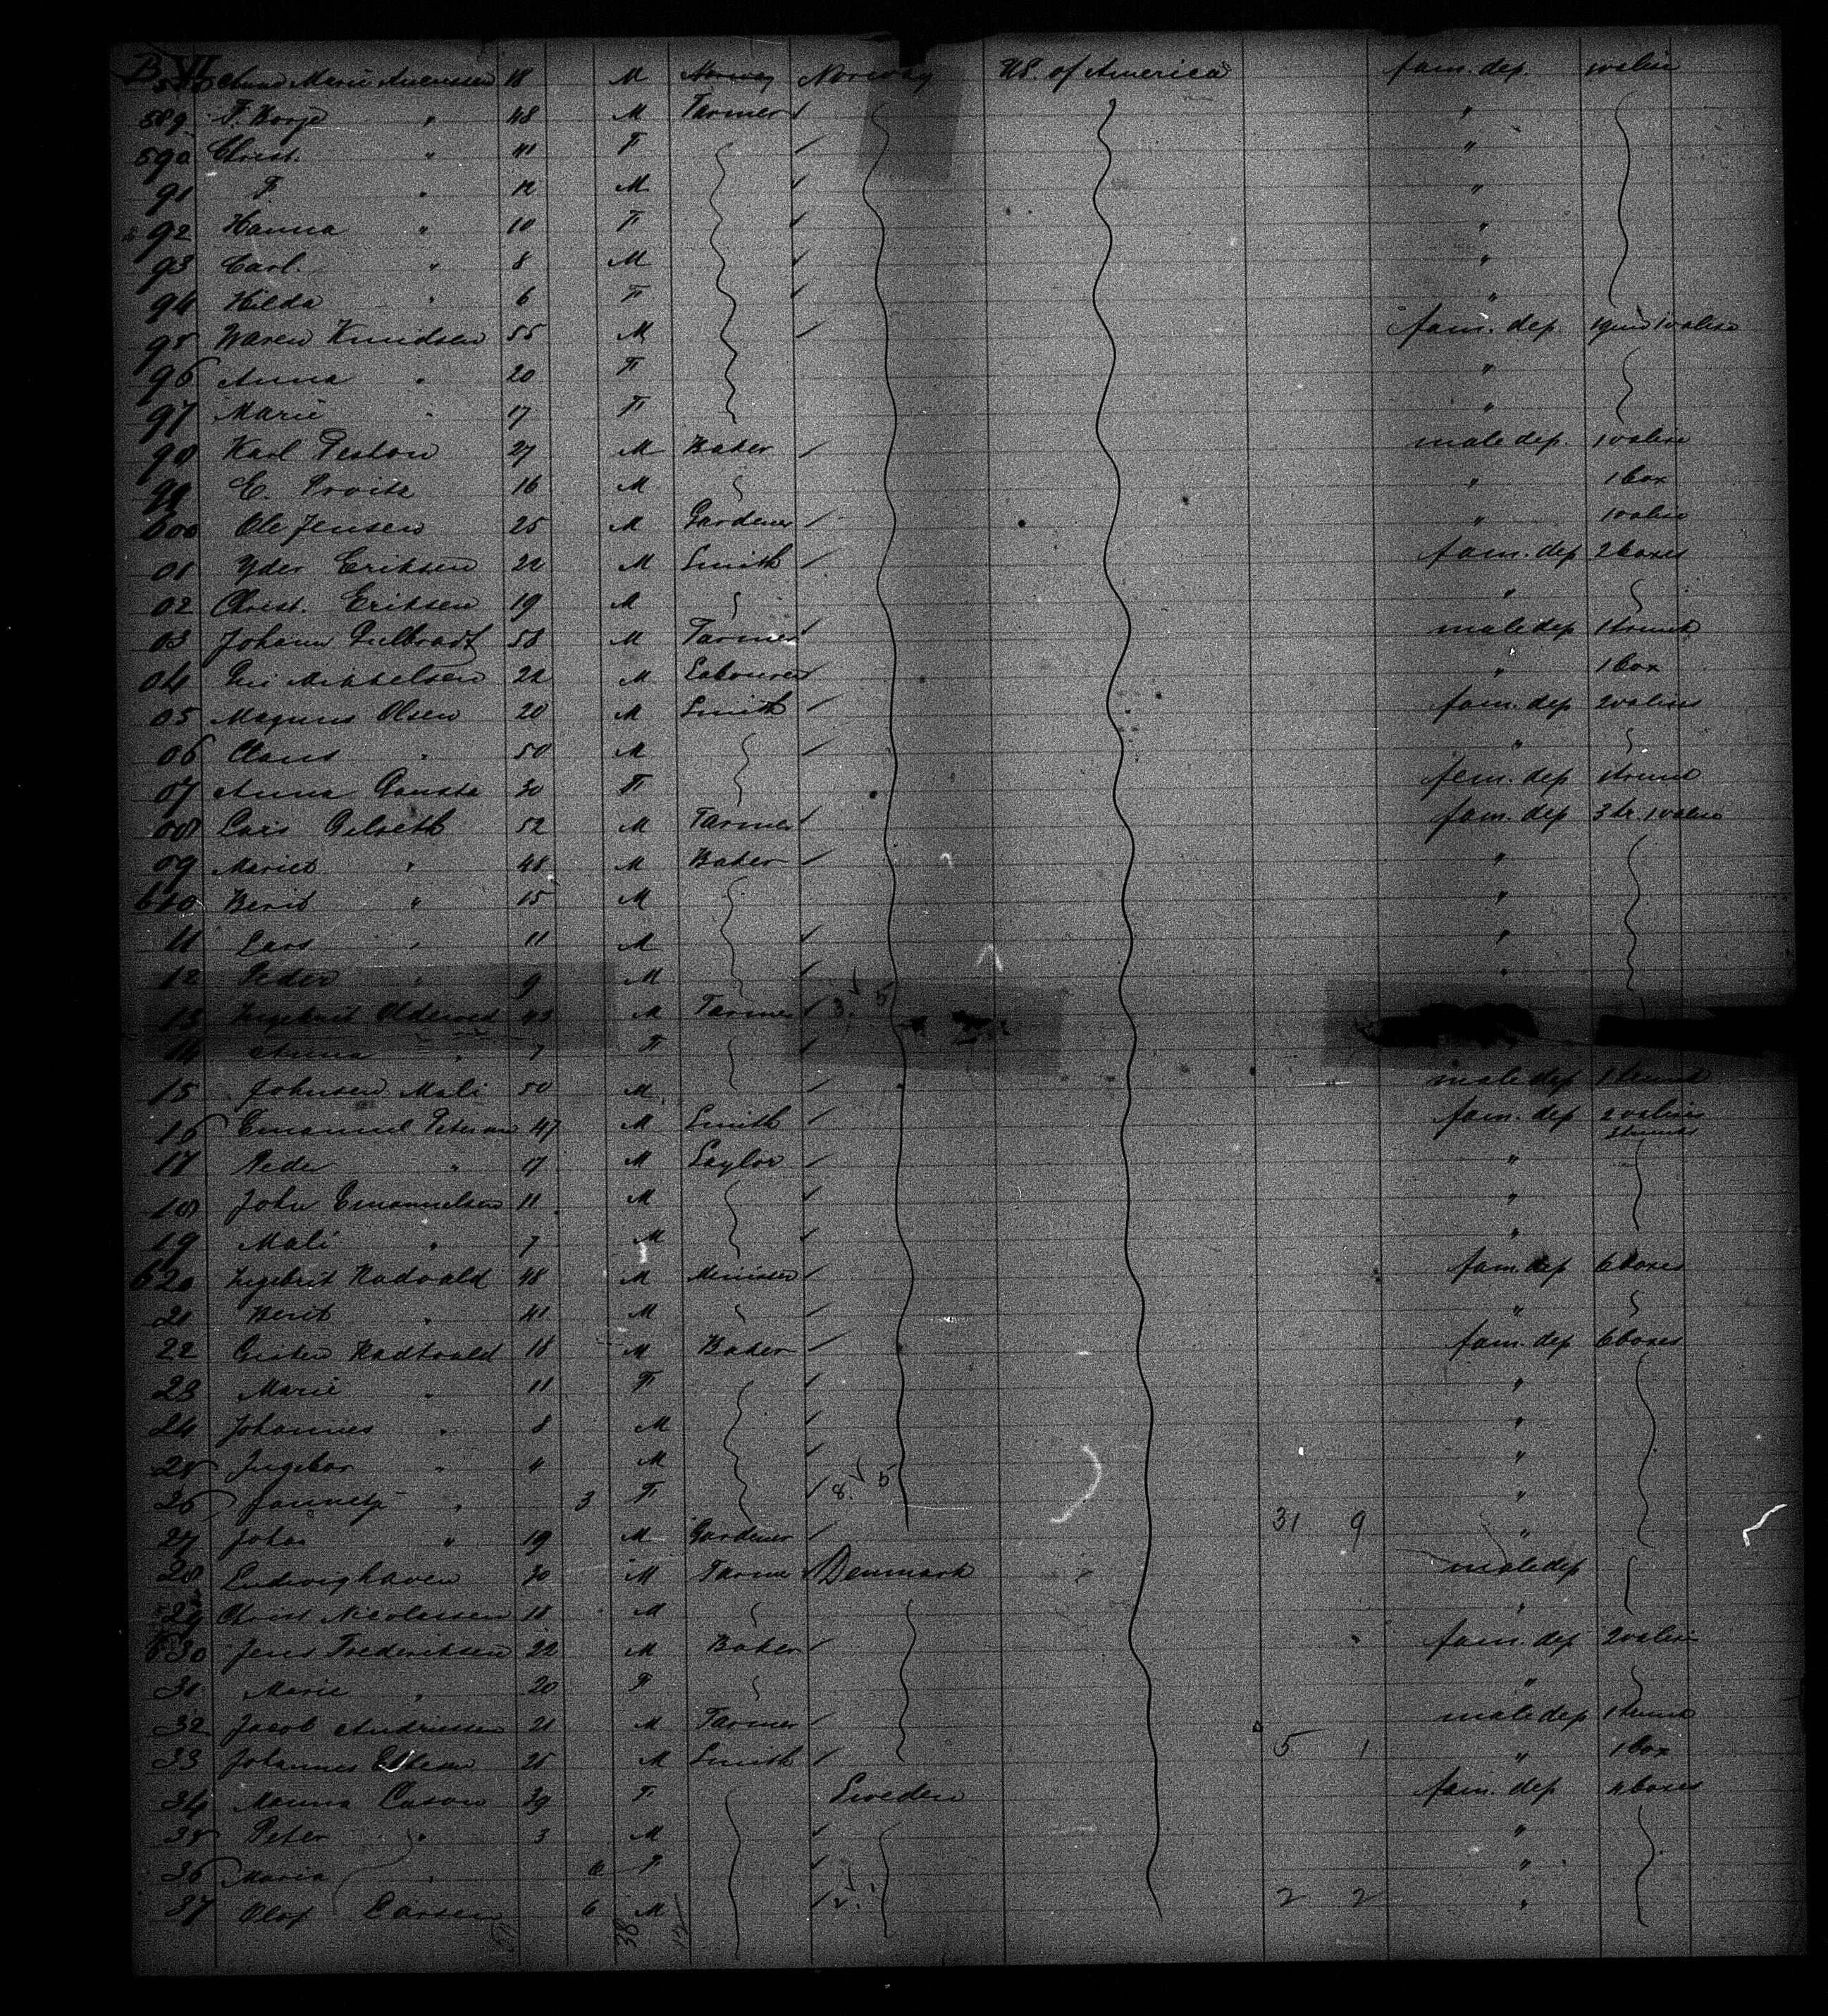 B VI
588 Anna Marie 18 M Norway Norway U.S. of America fam. dep. 1 valise
589 F. Borge " 48 M Farmer "
590 Christ. " 41 F "
91 F " 12 M "
92 Hanna " 10 F "
93 Carl. " 8 M "
94 Hilda " 6 F "
95 Waren Knudsen 55 M fam. dep 1 valise
96 Anna " 20 F "
97 Marie " 17 F "
98 Karl Peston 27 M Baker male dep. 1 valise
99 E. 16 M " 1 box
600 Ole Jensen 25 M Gardener " 1 valise
01 Eriksen 22 M Smith fam. dep 2 boxes
02 Christ. Eriksen 19 M "
03 Johann 58 M Farmer male dep 1 trunk
04 Mikkelsen 22 M Labourer " 1 box
05 Magnus Olsen 20 M Smith fam. dep 2 valises
06 Claus " 50 M "
07 Anna 30 F fem. dep 1 trunk
08 Lars Gilseth 52 M Farmer fam. dep 3 tr. 1 valise
09 Mariet " 48 M Baker "
610 Berit " 15 M "
11 Lars " 11 M "
12 Peder " 9 M "
13 Ingebrit 43 M Farmer 3. 5
14 Anna " 7 F
15 Johnsen Mali 50 M male dep 1 trunk
16 Emanuel Petersen 47 M Smith fam. dep 2 valises
trunks
17 Peder " 17 M Saylor "
18 John Emanuelsen 11 M "
19 Mali " 7 M "
620 Ingebrit Hadvald 48 M Minister fam. dep 6 boxes
21 Berit " 41 M "
22 Hadtvald 18 M Baker fam. dep 6 boxes
23 Marie " 11 F "
24 Johannes " 8 M "
25 Ingebor " 4 M "
26 " 3 F 8. 5 "
27 Johan " 19 M Gardener 31 9 "
28 Ludvighaven 30 M Farmer Denmark male dep
29 Christ Nicolessen 18 M "
630 Jens Frederiksen 22 M Baker fam. dep 2 valise
31 Marie " 20 F "
32 Jacob Andriessen 21 M Farmer male dep 1 trunk
33 Johannes 25 M Smith 5 1 " 1 box
34 Manna Cason 39 F Sweden fam. dep 4 boxes
35 Peter " 3 M "
36 Maria " F "
37 Olof Carsen 6 M 2 2 "
38 12